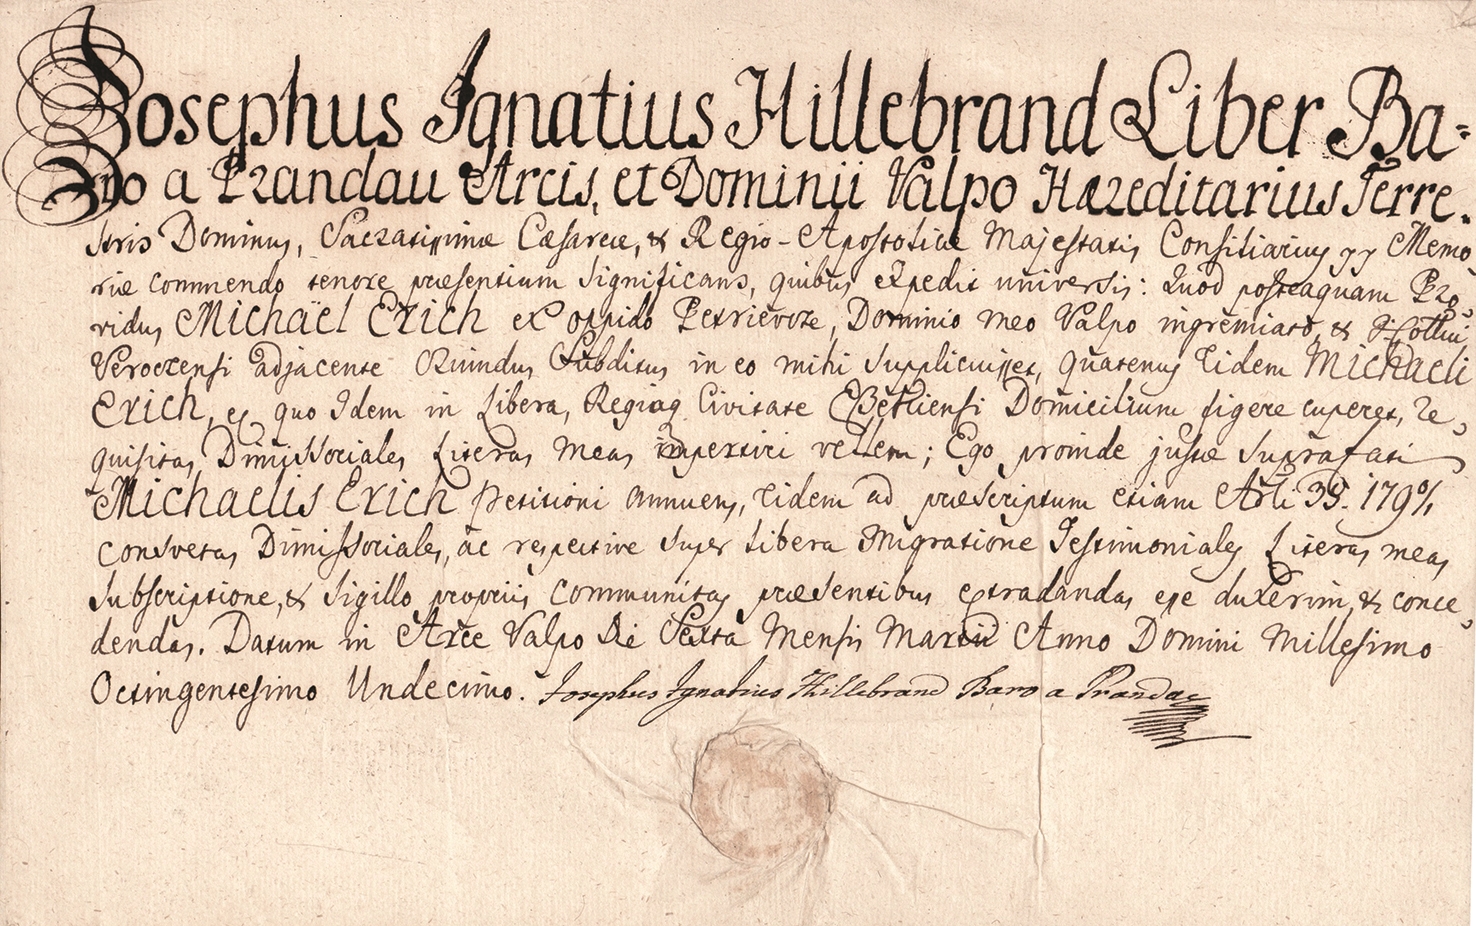 Josephus Ignatius Hillebrand Liber Ba=
ro a Prandau Arcis, et Dominii Valpo Hæreditarius Terre=
stris Dominus, Sacratissimæ Cæsareæ, & Regio-Apostolicæ Majestatis Consiliarius pp Memo,
riæ commendo tenore præsentium significans, quibus expedit universis: Quod posteaquam Pro,
vidus Michaël Erich ex Oppido Petrievcze, Dominio meo Valpo ingremiato, & I. Cottui
Veroczensi adjacente Oriundus Subditus in eo mihi supplicuisset, quatenus Eidem Michaeli
Erich, ex quo Idem in Libera, Regiaq Civitate Essekiensi Domicilium figere cuperet, re,
quisitas Dimissoriales Literas meas impertiri vellem; Ego proinde justæ suprafati
Michaelis Erich petitioni annuens, Eidem ad præscriptum etiam Arti 35. 179%
consvetas Dimissoriales, ac respective super libera Migratione Testimoniales Literas meas
subscriptione, & sigillo propriis communitas præsentibus extradandas esse duxerim, & conce,
dendas. Datum in Arce Valpo Die Sexta Mensis Martii Anno Domini Millesimo
Octingentesimo Undecimo. Josephus Ignatius Hillebrand Baro a Prandau